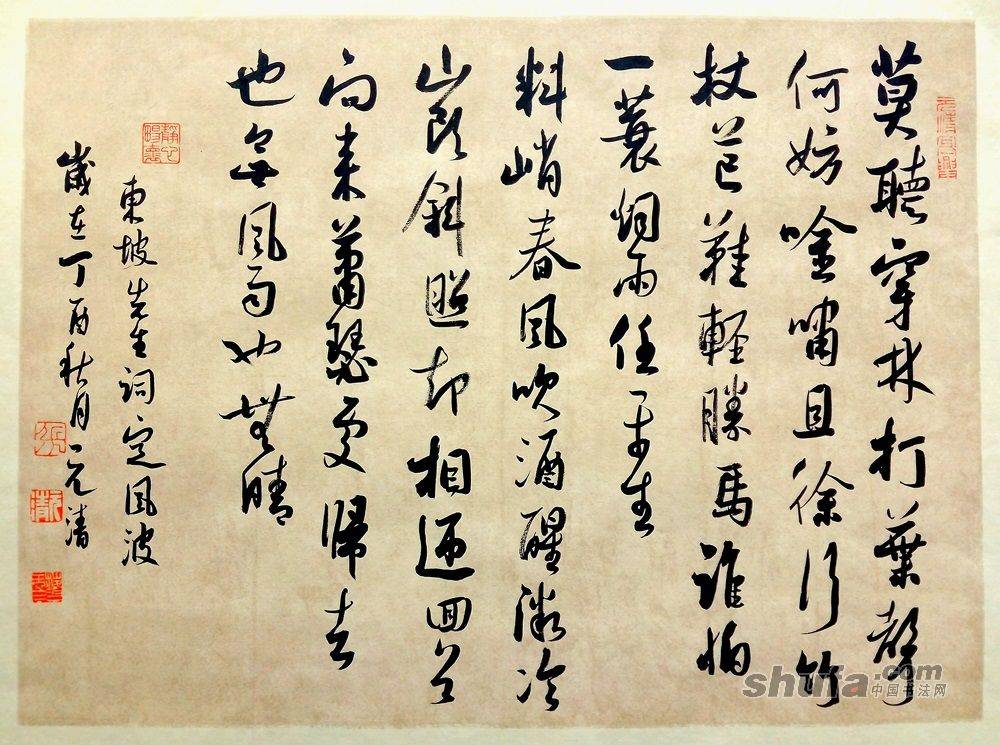 莫聽穿林打葉聲
何妨唫嘯且徐行竹
杖芒鞋輕勝馬誰怕
一蓑烟雨任平生
料峭春風吹酒醒微冷
山頭斜照却相迎回首
向来蕭瑟處歸去
也無風雨也無晴
東坡先生詞定風波
歲在丁酉秋月元清
shufa.com
中国书法网